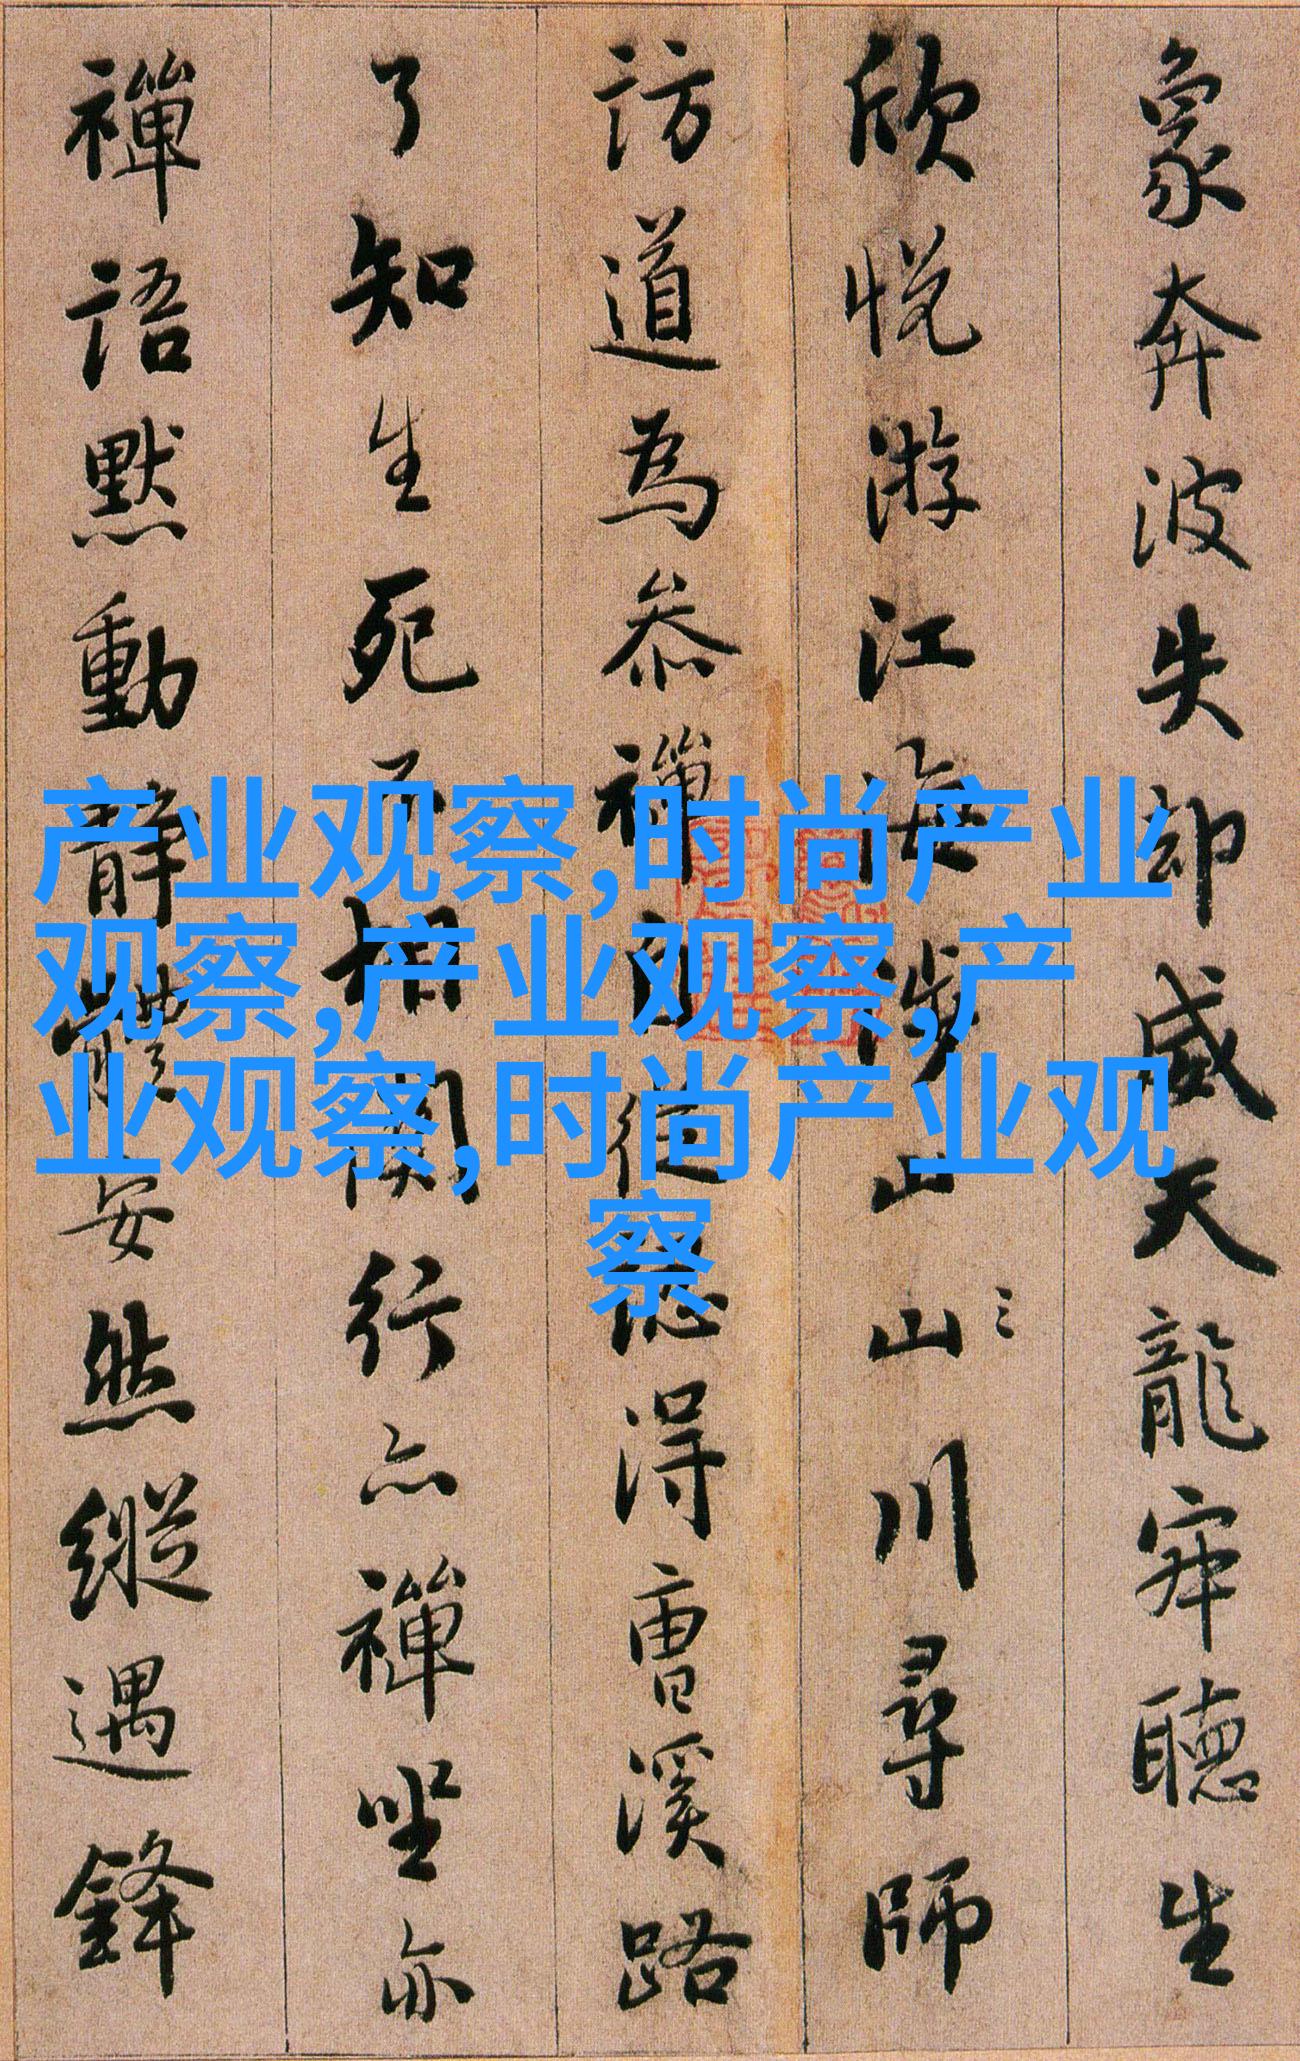 象奔波失却威天龍寂聽生
欣悦游江海涉山山川尋師
訪道為参禪自從認得曹溪路
了知生死不相關行亦禪坐亦
禪語默動靜體安然縱遇鋒
产业观察,时尚产业
观察,产业观察,产
业观察,时尚产业观
察